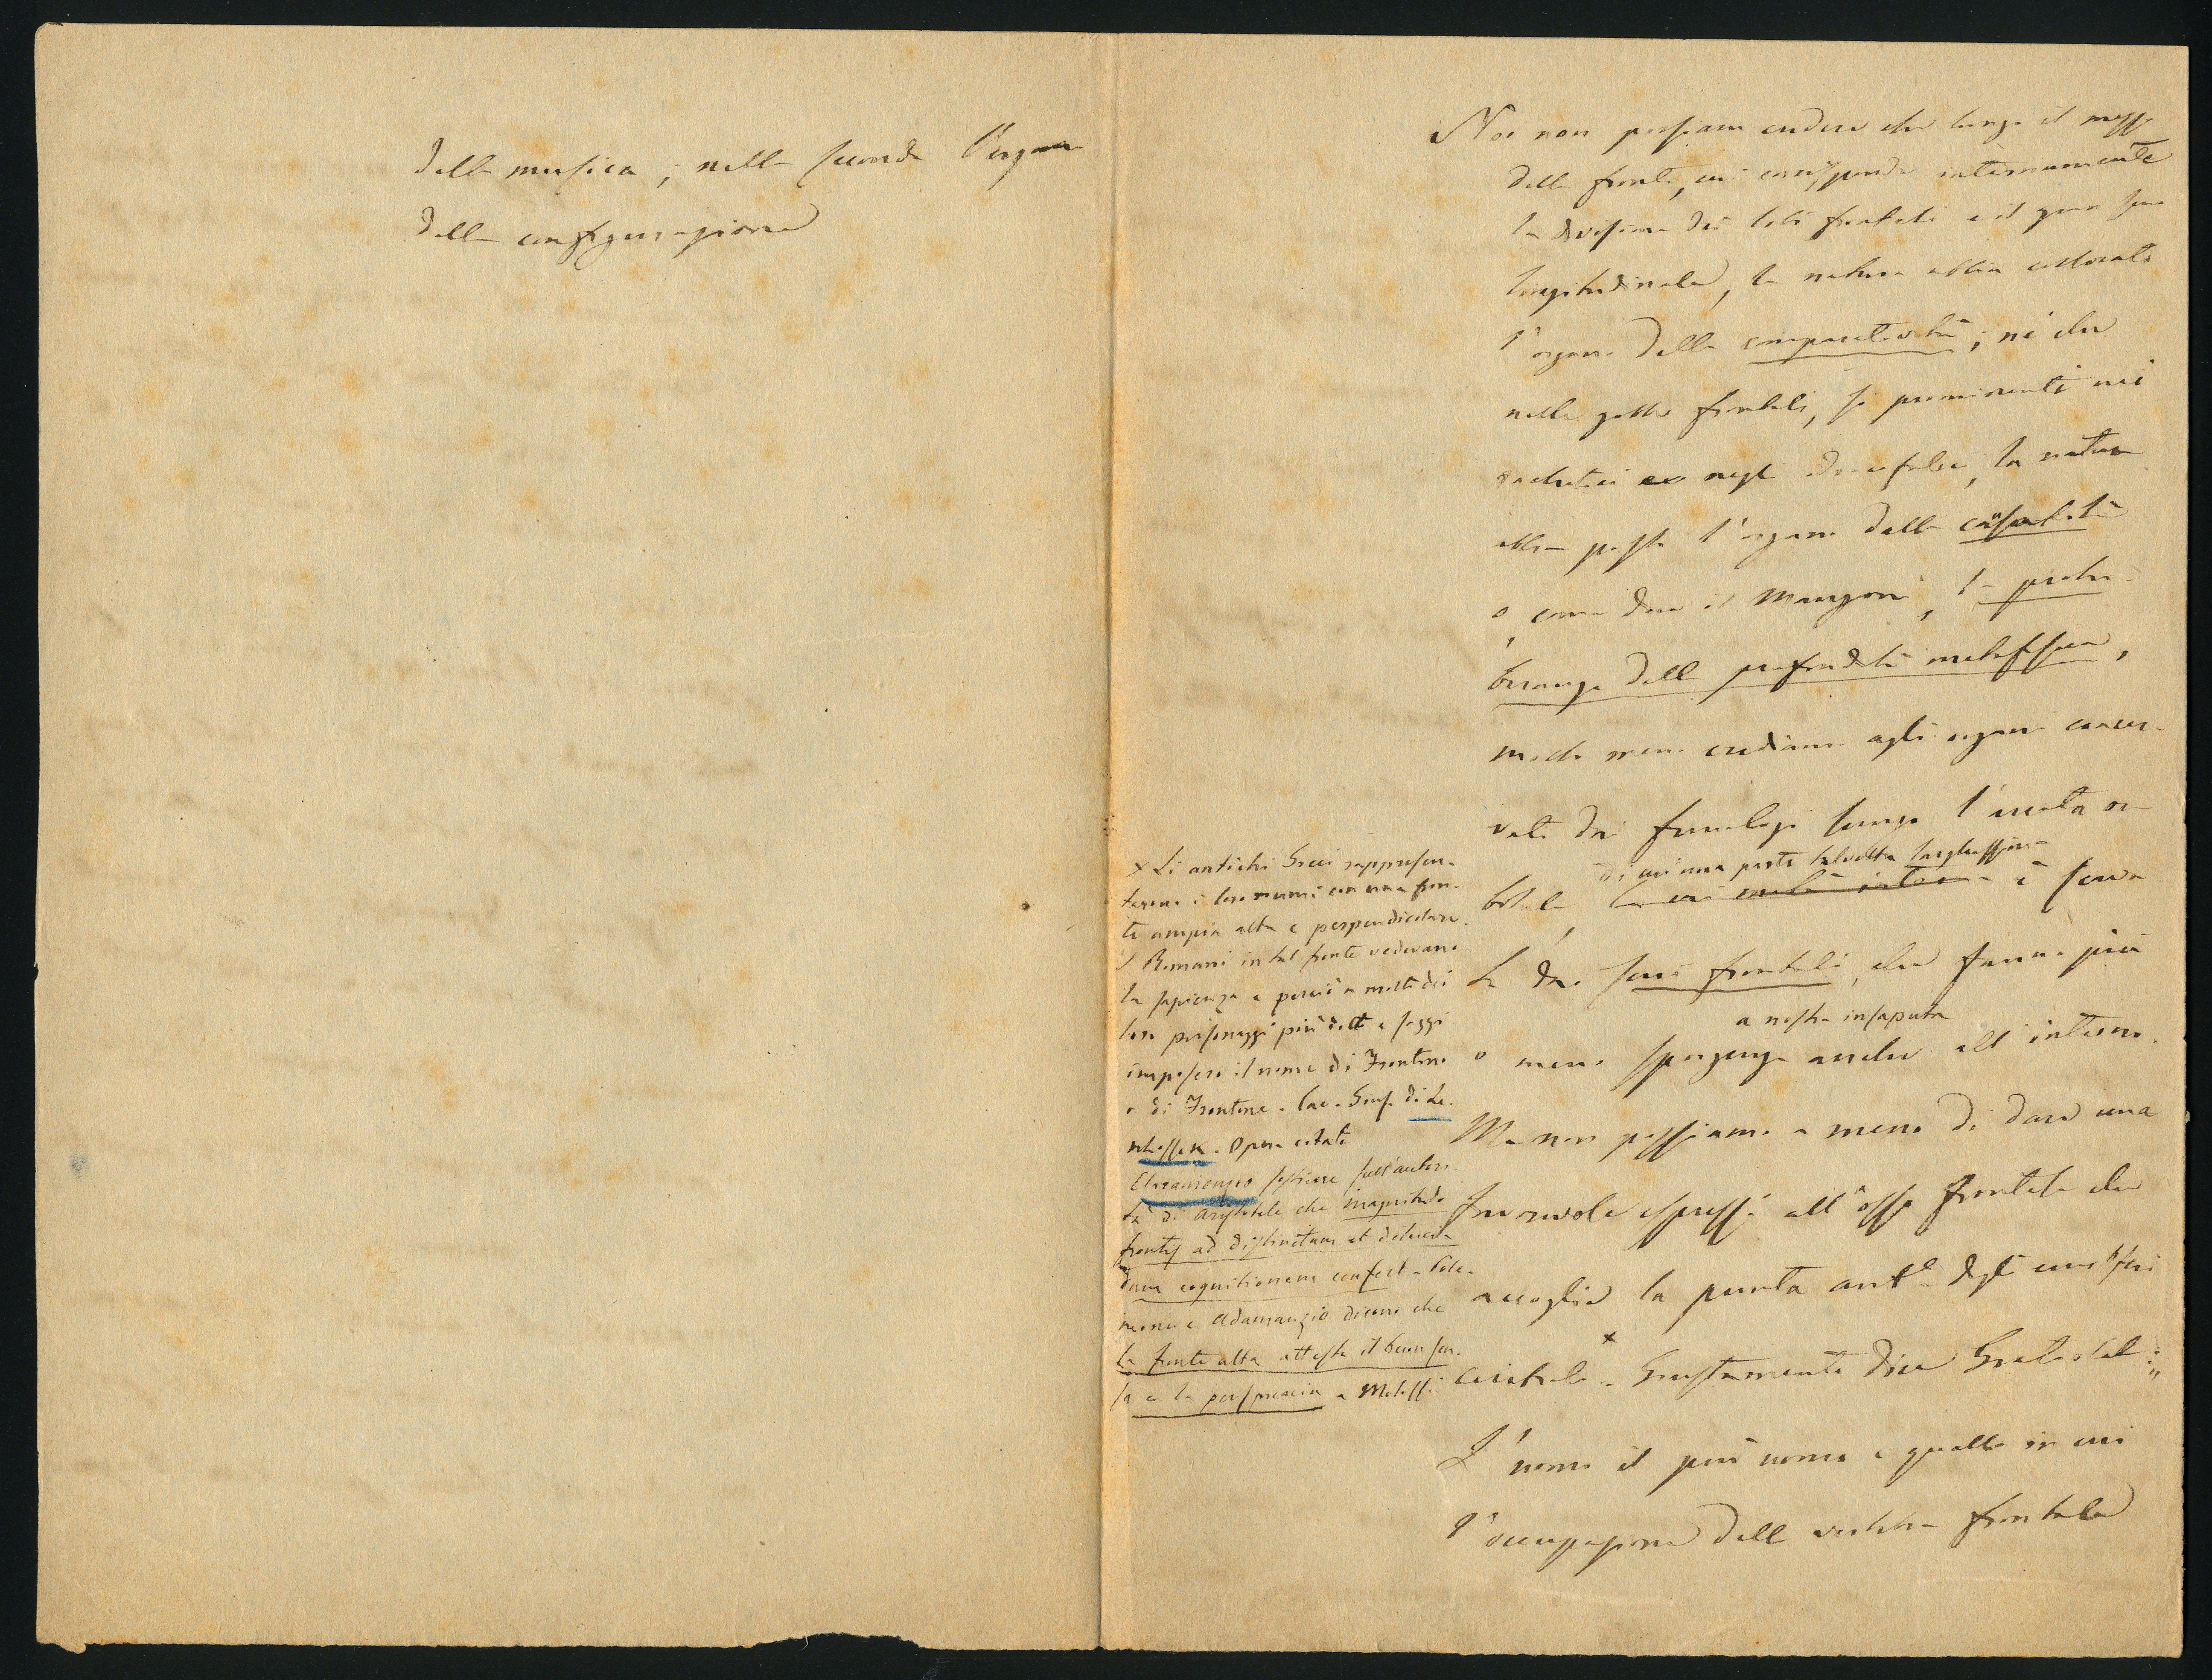 della musica; nella seconda l'organo
della configurazione
Noi non possiam credere che lungo il mezzo
della fronte, cui corrisponde internamente
la divisione dei lobi frontali e il gran seno
longitudinale, la natura abbia collocato
l'organo della comparatività; nè che
nelle gobbe frontali, sì prominenti nei
rachitici e negli idrocefali, la natura
abbia posto l'organo della causalità
o, come dice il Mangoni, la protu-
beranza della profondità metafisica,
molto meno crediamo agli organi concer-
vati dai frenologi lungo l'arcata or-
bitale,
di cui una parte talvolta larghissima
è scava-
ta dai seni frontali, che fanno più
a nostra insaputa
o meno sporgenza anche all'interno.
Ma non possiamo a meno di dare una
favorevole espressione all'osso frontale che
accoglie la punta ant.e degli emisferi
cerebrali. x Giustamente dice Gratiolet:
L'uomo il più uomo è quello in cui
l'occupazione della vertebra frontale
x Li antichi Greci rappresen-
tarono i loro numi con una fron-
te ampia alta e perpendicolare.
I Romani in tal fronte vedevano
la sapienza e perciò a molti dei
loro personaggi più dotti e saggi
imposero il nome di Frontino
o di Frontone. Cav. Gius. di Le-
nhossek. Opera citata
Claramonzio sostiene sull'autori-
tà di Aristotele che magnitudo
frontis ad distinctam et diluci-
dam cognitionem confert. Pole-
mone e Adamanzio dicono che
la fronte alta attesta il buon sen-
so e la perspicacia